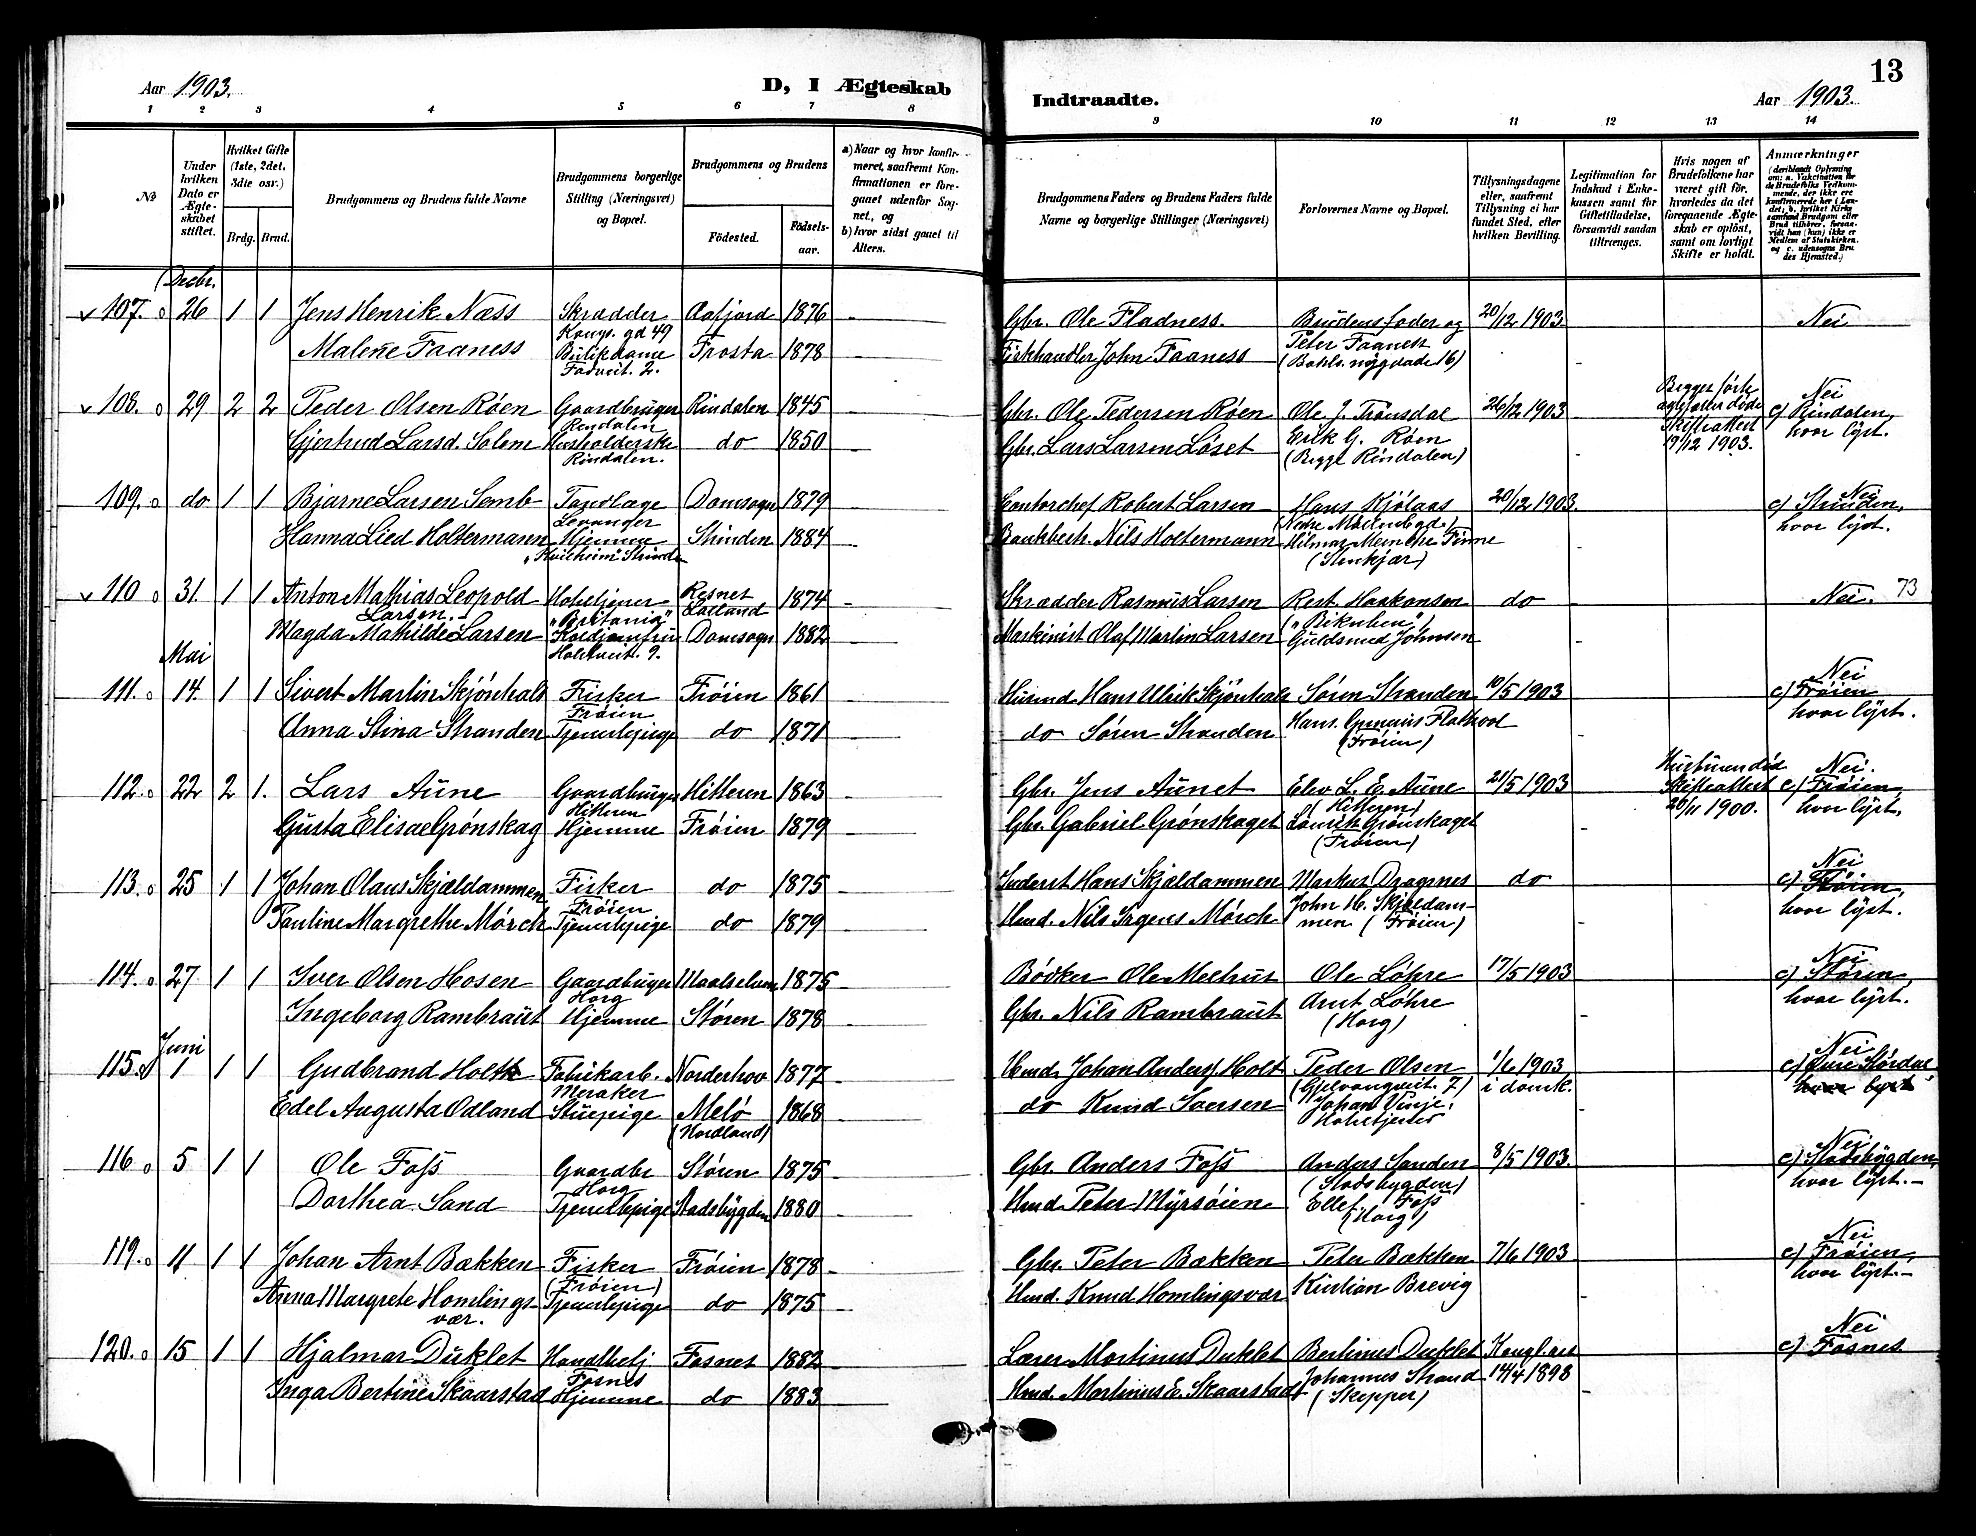 Aar 1903.
D, I Ægteskab
1 2 3 4 5 6 7 8
№
Under hvilken Dato er Ægteskabet stiftet.
Hvilket Gifte (1ste, 2det, 3die osv.)
Brdg. Brud.
Brudgommens og Brudens fulde Navne
Brudgommens borgerlige Stilling (Næringsvei) og Bopæl.
Brudgommens og Brudens
Fødested.
Fødselsaar.
a) Naar og hvor konfirmeret, saafremt Konfirmationen er foregaaet udenfor Sognet, og
b) hvor sidst gaaet til Alters.
Decbr.
107. 26 1 1 Jens Henrik Næss Skrædder Aafjord 1876
Kongs. gd 49
Malene Faaness Butikdame Frosta 1878
108. 29 2 2 Peder Olsen Røen Gaardbruger Rindalen 1845
Rindalen
Gjertrud Larsd. Solem Husholderske do 1850
Rindalen.
109. do 1 1 Bjarne Larsen Semb Tandlæge Domsogn 1879
Levanger
Hanna Lied Holtermann Hjemme Strinden 1884
110 31. 1 1 Anton Mathias Leopold Larsen. Hoteltjener 1874
"Britania"
Magda Mathilde Larsen Domsogn 1882
Mai
111. 14. 1 1 Sivert Martin Skjønhals Fisker Frøien 1861
Frøien
Anna Stina Stranden Tjenestepige do 1871
112. 22 2 1. Lars Aune Gaardbruger Hitteren 1863
Hitteren
Gusta Elisæ Grønskag Hjemme Frøien 1879
113. 25 1 1 Johan Olaus Skjældammen Fisker do 1875
Frøien
Pauline Margrethe Mørch Tjenestepige do 1879
114. 27 1 1 Iver Olsen Hosen Gaardbruger Maalselven 1875
Horg
Ingeborg Rambraut Hjemme Støren 1878
Juni
115. 1 1 1 Gudbrand Holth Fabrikarb. Norderhov 1877
Meraker
Edel Augusta Ødland Stuepige Melø 1868
(Nordland)
116 5 1 1 Ole Foss Gaardbr Støren 1875
Horg
Dorthea Sand Tjenestepige Stadsbygden 1880
119. 11 1 1 Johan Arnt Bækken Fisker Frøien 1878
(Frøien)
Anna Margrete Homlingsvær. Tjenestepige do 1875
120. 15 1 1 Hjalmar Duklet Handelbetj Fosnes 1882
Fosnes
Inga Bertine Skaarstad Hjemme do 1883
Indtraadte.
Aar 1903.
13
9 10 11 12 13 14
Brudgommens Faders og Brudens Faders fulde Navne og borgerlige Stillinger (Næringsvei)
Forlovernes Navne og Bopæl.
Tillysningsdagene eller, saafremt Tillysning ei har fundet Sted, efter hvilken Bevilling.
Legitimation for Indskud i Enkekassen samt for Giftetilladelse, forsaavidt saadan tiltrænges.
Hvis nogen af Brudefolkene har været gift før, hvorledes da det foregaaende Ægteskab er opløst, samt om lovligt Skifte er holdt.
Anmærkninger
(deriblandt Oplysning om: a. Vaccination for de Brudefolks Vedkommende, der ikke ere konfirmerede her i Landet; b. hvilket Kirkesamfund Brudgom eller Brud tilhører, forsaavidt han (hun) ikke er Medlem af Statskirken, og c. udensogns Brudes Hjemsted.)
Gbr. Ole Fladness. Brudens fader og 20/12 1903. Nei
Peter Faaness
Fiskhandler John Faaness
Gbr. Ole Pedersen Røen Ole J. Trønsdal 26/12 1903 Begges første ægtefæller døde Nei
Skifteattest 19/12 1903. c) Rindalen, hvor lyst.
Gbr. Lars Larsen Løset Erik G. Røen
(Begge Rindalen)
Contorchef Robert Larsen Hans Kjølaas 20/12 1903. Nei
c) Strinden, hvor lyst.
Bankbest. Nils Holtermann Hilmar Finne
(Stenkjær)
Skrædder Rasmus Larsen Rest. Haakonsen do Nei. 73
("Bikuben")
Maskinist Olaf Martin Larsen Guldsmed Johnsen
Husmd Hans Ulrik Skjønhals Søren Stranden 10/5 1903 Nei
c) Frøien hvor lyst.
do Søren Stranden Hans
(Frøien)
Gbr. Jens Aunet Elev L. E. Aune 21/5 1903 Hustruen død Nei.
(Hitteren) Skifteattest 26/11 1900. c) Frøien, hvor lyst,
Gbr. Gabriel Grønskaget Grønskaget
(Frøien)
Hans Skjældammen Markus Dragsnes do Nei
c) Frøien, hvor lyst.
Hmd. Nils Irgens Mørch John H. Skjældammen (Frøien)
Bødker Ole Ole Løhre 17/5 1903 Nei
c) Støren, hvor lyst.
Gbr. Nils Rambraut Arnt Løhre
(Horg)
Hmd. Johan Anders Holt Peder Olsen 1/6 1903 Nei
i domk. c) Øvre Størdal hvor lyst
do Knud Johan Vinje,
Hoteltjener
Gbr. Anders Foss Anders Sanden 8/5 1903. Nei
(Stadsbygden) c) Stadsbygden, hvor lyst.
Hmd. Peter Myrsøien Ellef Foss
(Horg)
Gbr. Peter Bækken Peter Bækken 7/6 1903 Nei
c) Frøien, hvor lyst.
Hmd. Knud Homlingsvær Kristian Brevig
Lærer Martinus Duklet Bertines Duklet Kongl. res Nei
c) Fosnes
Hmd. Martinus E. Skaarstad Johannes Strand 14/4 1898
(Skepper)